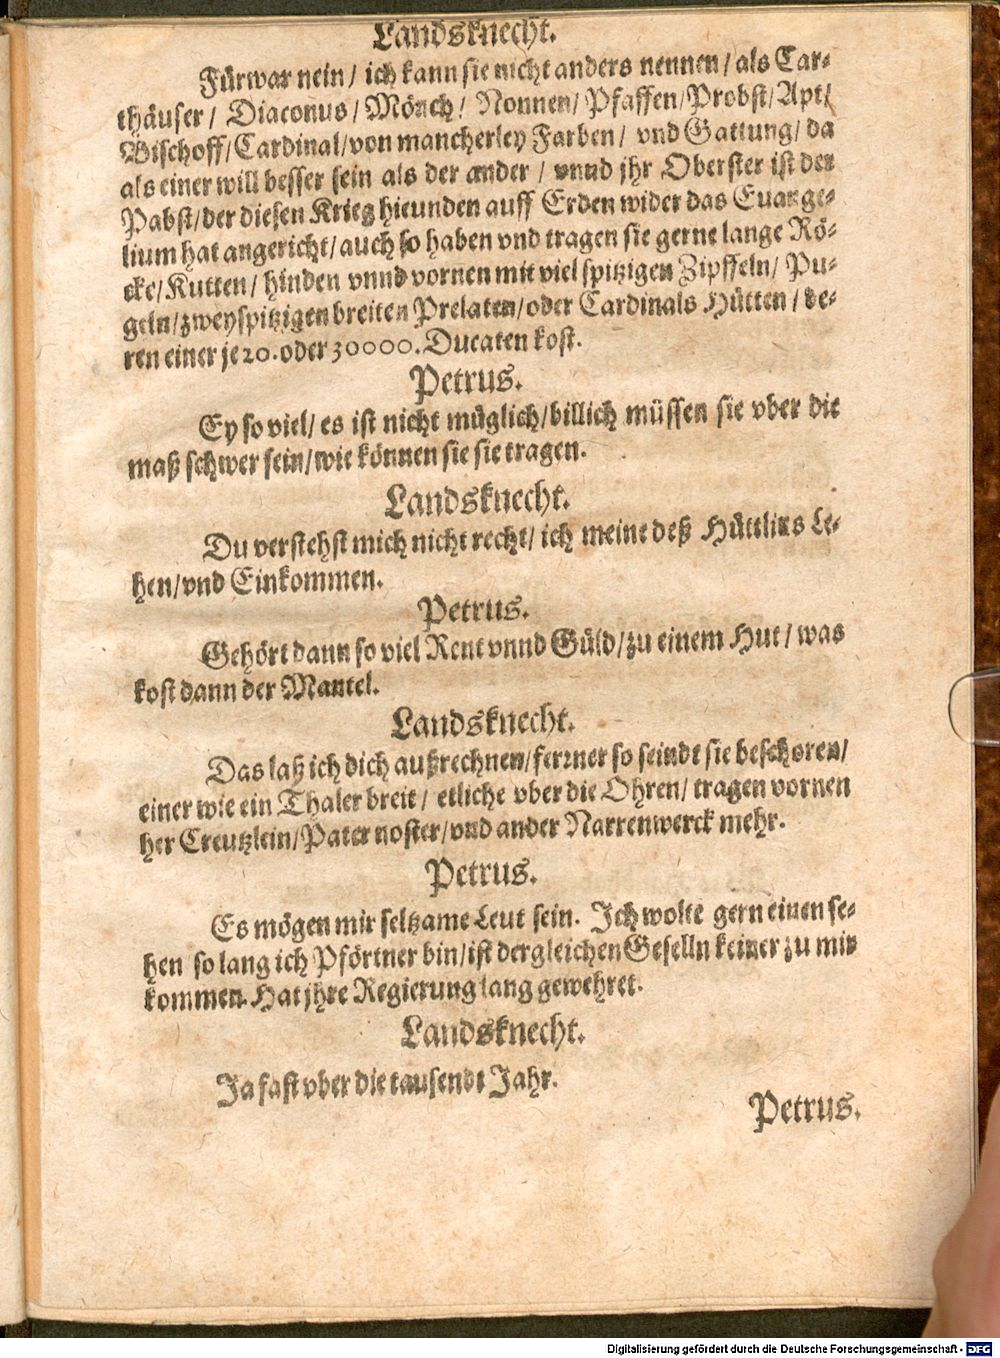 Landsknecht.
Fürwar nein / ich kann sie nicht anders nennen / als Car-
thäuser / Diaconus / Mönch / Nonnen / Pfaffen / Probst / Apt /
Bischoff / Cardinal / von mancherley Farben / vnd Gattung / da
als einer will besser sein als der ander / vnnd jhr Oberster ist der
Pabst / der diesen Krieg hieunden auff Erden wider das Euange-
lium hat angericht / auch so haben vnd tragen sie gerne lange Rö-
cke / Kutten / hinden vnnd vornen mit viel spitzigen Zipffeln / Pu-
geln / zweyspitzigen breiten Prelaten / oder Cardinals Hütten / de-
ren einer je 20. oder 30000. Ducaten kost.
Petrus.
Ey so viel / es ist nicht müglich / billich müssen sie vber die
maß schwer sein / wie können sie sie tragen.
Landsknecht.
Du verstehst mich nicht recht / ich meine deß Hüttlins Le-
hen / vnd Einkommen.
Petrus.
Gehört dann so viel Rent vnnd Güld / zu einem Hut / was
kost dann der Mantel.
Landsknecht.
Das laß ich dich außrechnen / ferrner so seindt sie beschoren /
einer wie ein Thaler breit / etliche vber die Ohren / tragen vornen
her Creutzlein / Pater noster / vnd ander Narrenwerck mehr.
Petrus.
Es mögen mir seltzame Leut sein. Ich wolte gern einen se-
hen so lang ich Pförtner bin / ist dergleichen Geselln keiner zu mir
kommen. Hat jhre Regierung lang gewehret.
Landsknecht.
Ja fast vber die tausendt Jahr.
Petrus.
Digitalisierung gefördert durch die Deutsche Forschungsgemeinschaft - DFG